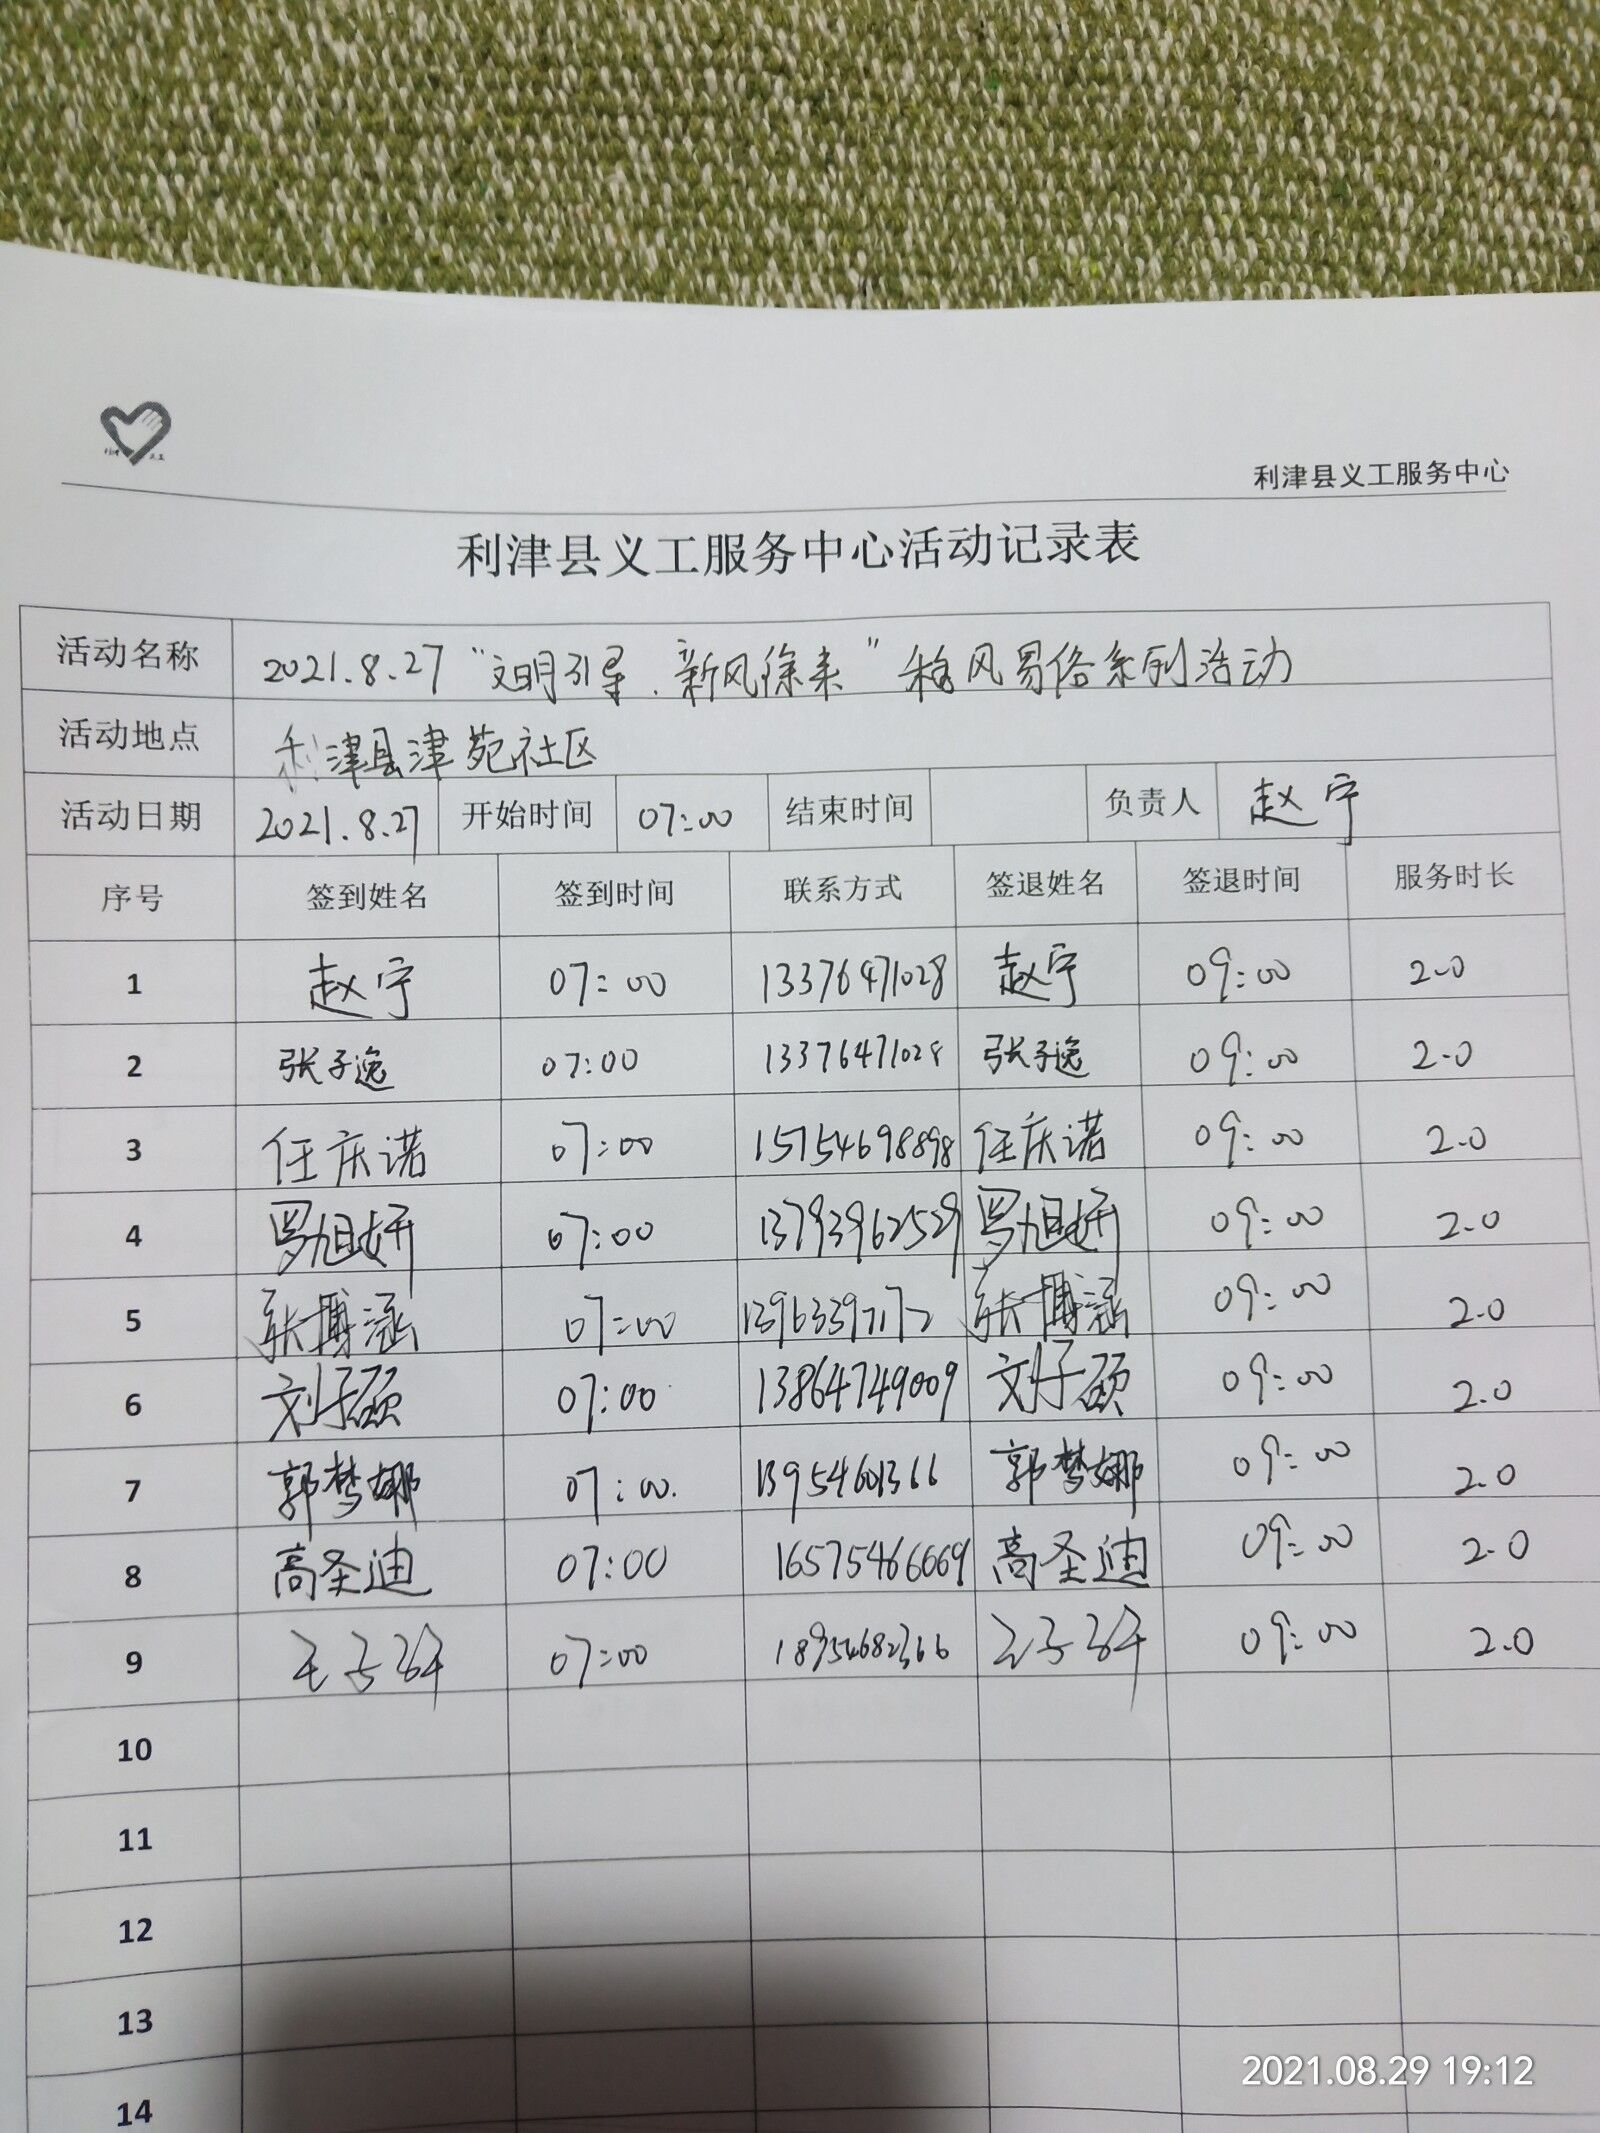 利津县义工服务中心
利津县义工服务中心活动记录表
活动名称 2021.8.27 “文明引导、新风徐来” 移风易俗系列活动
活动地点 利津县津苑社区
活动日期 2021.8.27 开始时间 07:00 结束时间 负责人 赵宁
序号 签到姓名 签到时间 联系方式 签退姓名 签退时间 服务时长
1 赵宁 07:00 13376471028 赵宁 09:00 2.0
2 张子逸 07:00 13376471028 张子逸 09:00 2.0
3 任庆诺 07:00 15754698898 任庆诺 09:00 2.0
4 罗旭妍 07:00 13793962529 罗旭妍 09:00 2.0
5 张博涵 07:00 13963397172 张博涵 09:00 2.0
6 刘子硕 07:00 13864749009 刘子硕 09:00 2.0
7 郭梦娜 07:00. 13954601366 郭梦娜 09:00 2.0
8 高圣迪 07:00 16575466669 高圣迪 09:00 2.0
9 07:00 18954682366 09:00 2.0
10
11
12
13
14
2021.08.29 19:12